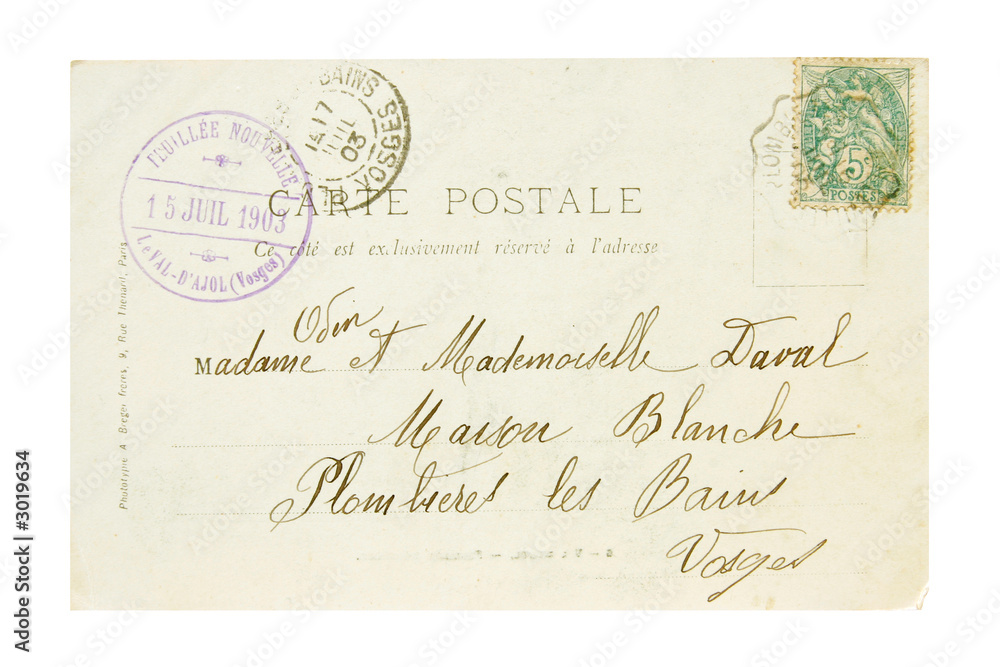 FEUILLÉE NOUVELLE
15 JUIL 1903
LE VAL-D'AJOL (Vosges)
BAINS VOSGES
17
JUIL
03
5c
POSTES
CARTE POSTALE
Ce côté est exclusivement réservé à l'adresse
Odin
Madame et Mademoiselle Daval
Maison Blanche
Plombieres les Bains
Vosges
Phototypie A. Breger frères, 9, Rue Thenard, Paris
Adobe Stock | #3019634